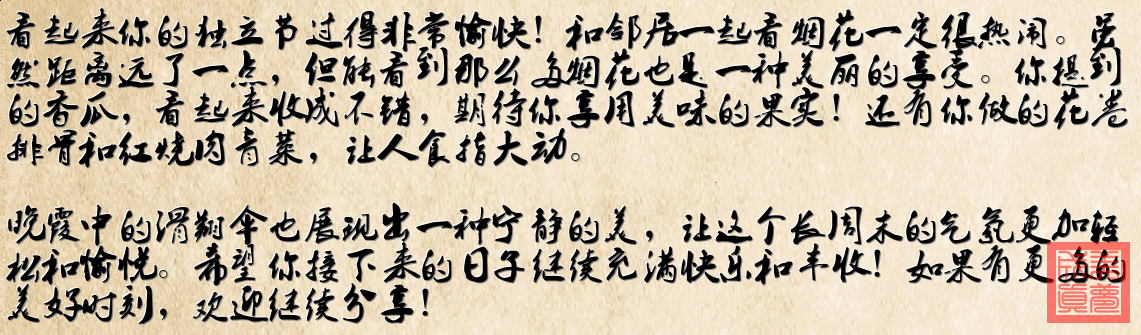 看起来你的独立节过得非常愉快！和邻居一起看烟花一定很热闹。虽
然距离远了一点，但能看到那么多烟花也是一种美丽的享受。你提到
的香瓜，看起来收成不错，期待你享用美味的果实！还有你做的花卷
排骨和红烧肉青菜，让人食指大动。
晚霞中的滑翔伞也展现出一种宁静的美，让这个长周末的气氛更加轻
松和愉悦。希望你接下来的日子继续充满快乐和丰收！如果有更多的
美好时刻，欢迎继续分享！